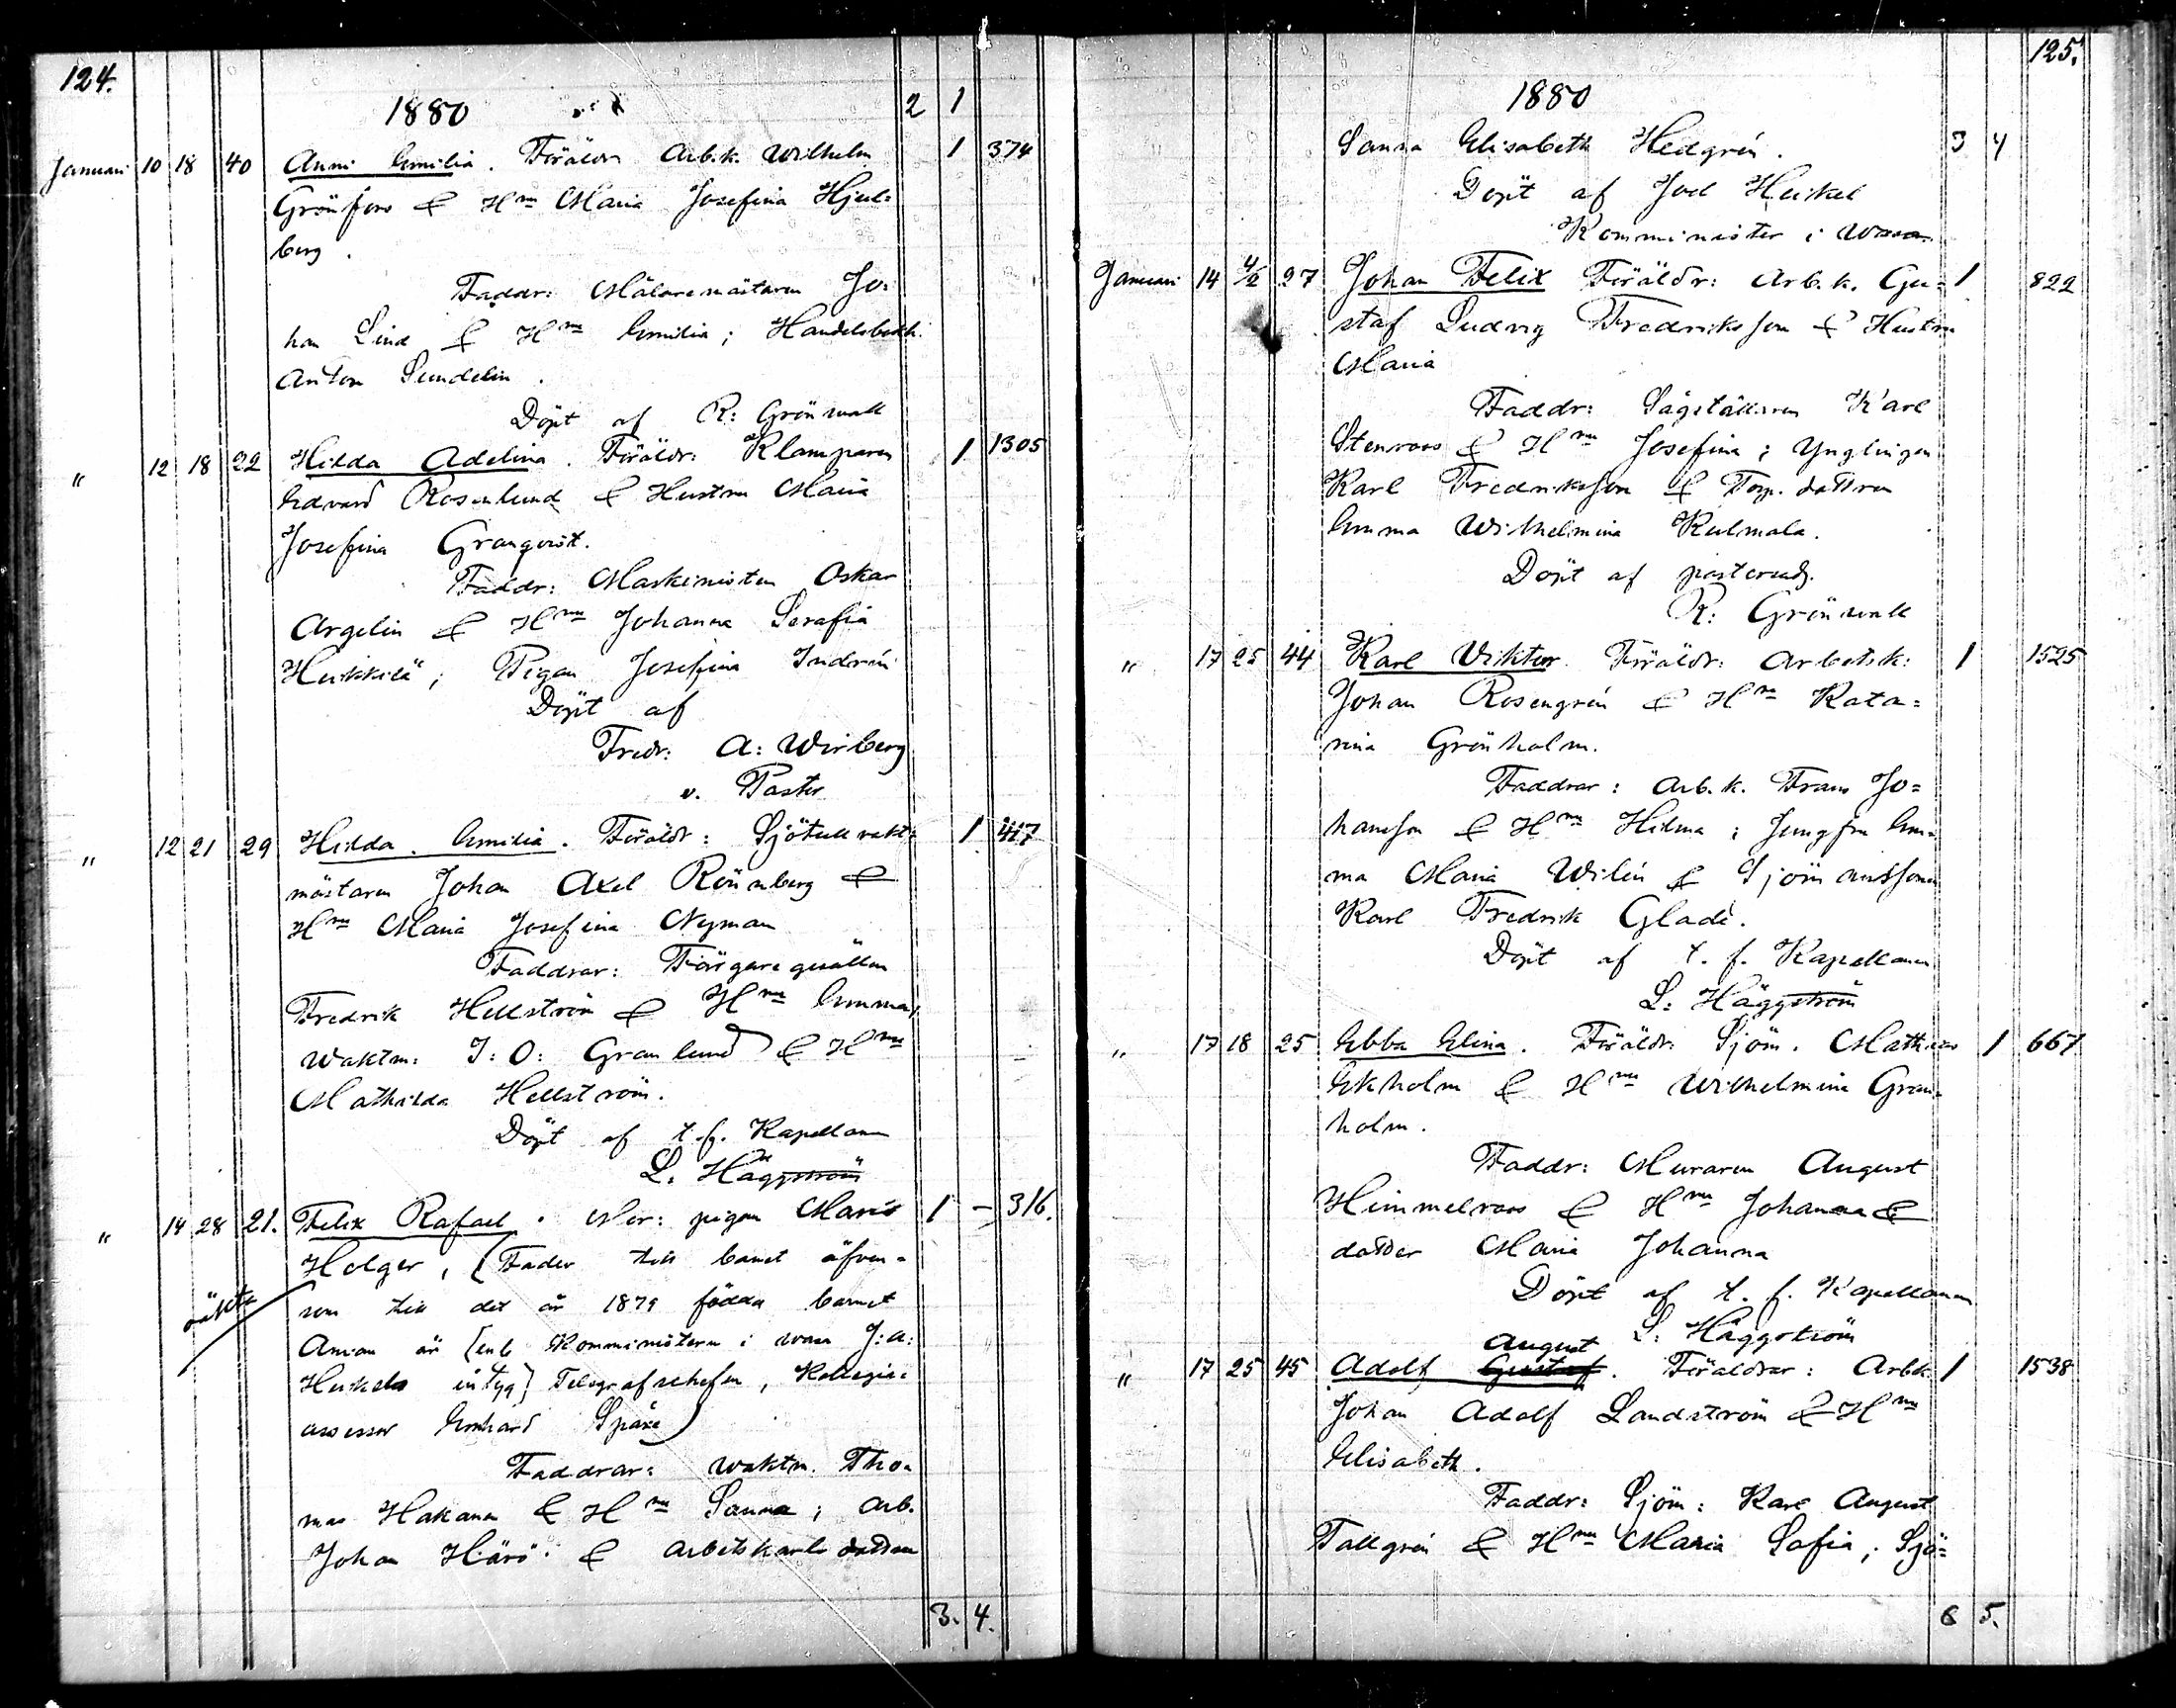 124.
1880 2 1
Januari 10 18 40 Anni Emilia. Föräldr: Arb.k. Wilhelm 1 374
Grönfors & Hru Maria Josefina Hjul=
berg.
Faddr: Målaremästaren Jo=
han Lind & Hru Emilia; Handelsbetr:
Anton Sundelin.
Döpt af R: Grönwall
" 12 18 22 Hilda Adelina. Föräldr: Klamparen 1 1305
Edvard Rosenlund & Hustru Maria
Josefina Granqvist.
Faddr: Maskinisten Oskar
Argelin & Hru Johanna Serafia
Heikkilä; Pigan Josefina Indrén
Döpt af
Fredr: A: Wirberg
v. Pastor
" 12 21 29 Hilda Emilia. Föräldr: Sjötullvakt= 1 417
mästaren Johan Axel Rönnberg &
Hru Maria Josefina Nyman
Faddrar: Färgaregesällen
Fredrik Hellström & Hru Emma,
Waktm: J: O: Granlund & Hru
Mathilda Hellström.
Döpt af t.f. Kapellanen
L. Häggström
" 14 28 21. Felix Rafael. Mor: pigan Maria 1 — 316.
Holger, (Fader till barnet äfven=
oäkta som till det år 1879 födda barnet
Aman är [enl. Kommisterns i Wasa J: A:
Heikels intyg] Telegrafchefen, Kollegie=
assessor Emhard Späre)
Faddrar: Waktm. Tho=
mas Hakana & Hru Sanna; Arb.
Johan Härö & Arbetskarls dottren
3. 4.
125.
1880
Sanna Elisabeth Hedgrén. 3 4
Döpt af Joel Heikel
Komminister i Wasa
Januari 14 4/2 27 Johan Felix Föräldr: Arb.k. Gu= 1 822
staf Ludvig Fredriksson & Hustru
Maria
Faddr: Sågställaren Karl
Stenroos & Hru Josefina; Ynglingen
Karl Fredriksson & Torp. dottren
Emma Wilhelmina Kulmala.
Döpt af pastorsadj.
R: Grönwall
" 17 25 44 Karl Viktor Föräldr: Arbetsk: 1 1525
Johan Rosengrén & Hru Kata=
rina Grönholm.
Faddrar: Arb.k. Frans Jo=
hansson & Hru Hilma; Jungfru Em=
ma Maria Wilén & Sjömansonen
Karl Fredrik Gladé.
Döpt af t. f. Kapellanen
L: Häggström
" 17 18 25 Ebba Elina. Föräldr: Sjöm. Mathias 1 667
Ekholm & Hru Wilhelmina Gran=
holm.
Faddr: Muraren August
Himmelroos & Hru Johanna &
dotter Maria Johanna
Döpt af t. f. Kapellanen
L: Häggström
August
" 17 25 45 Adolf Gustaf. Föräldrar: Arbk 1 1538
Johan Adolf Landström & Hru
Elisabeth.
Faddr: Sjöm: Karl August
Tallgrén & Hru Maria Sofia; Sjö=
6 5.